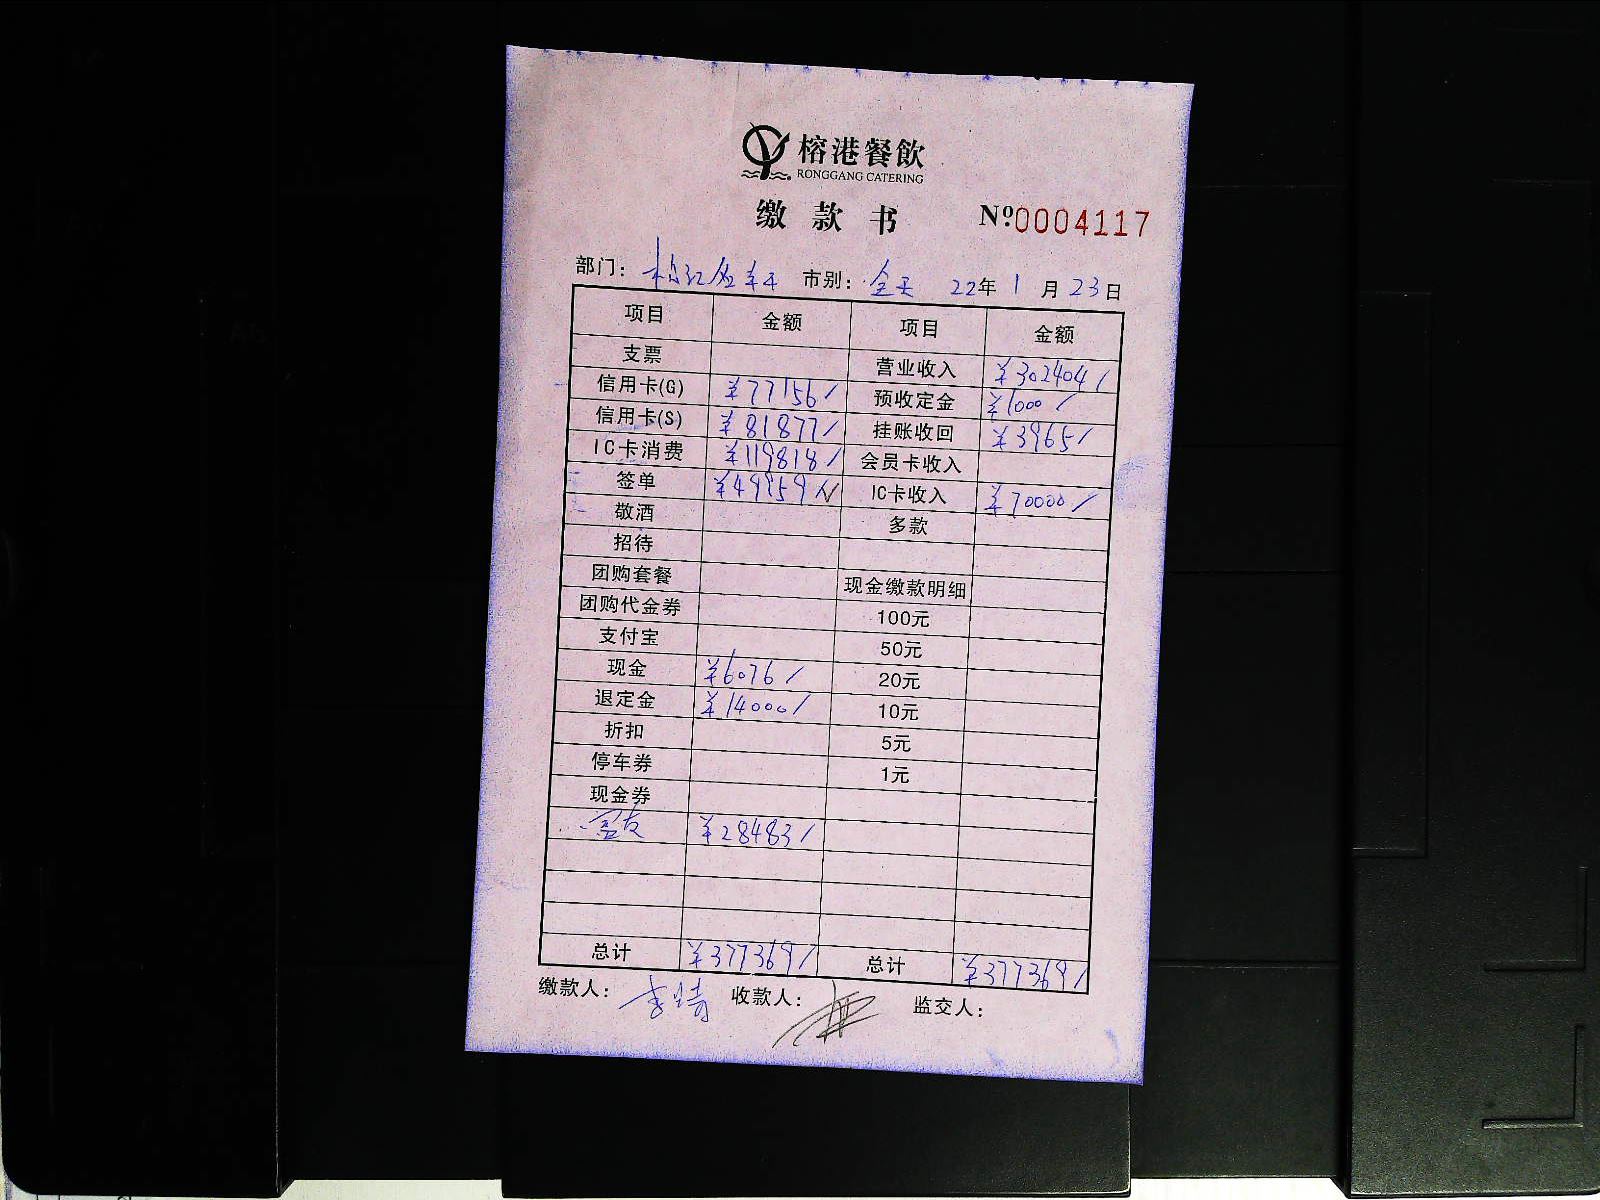 榕港餐飲
RONGGANG CATERING
缴款书 Nº0004117
部门： 市别：全天 22年1月23日
项目 金额 项目 金额
支票 营业收入 ¥302404/
信用卡(G) ¥77156/ 预收定金 ¥1000/
信用卡(S) ¥81877/ 挂账收回 ¥3965/
IC卡消费 ¥119818/ 会员卡收入
签单 ¥49959/ IC卡收入 ¥70000/
敬酒 多款
招待
团购套餐 现金缴款明细
团购代金券 100元
支付宝 50元
现金 ¥6076/ 20元
退定金 ¥14000/ 10元
折扣 5元
停车券 1元
现金券
¥28483/
总计 ¥377369/ 总计 ¥377369/
缴款人： 收款人： 监交人：